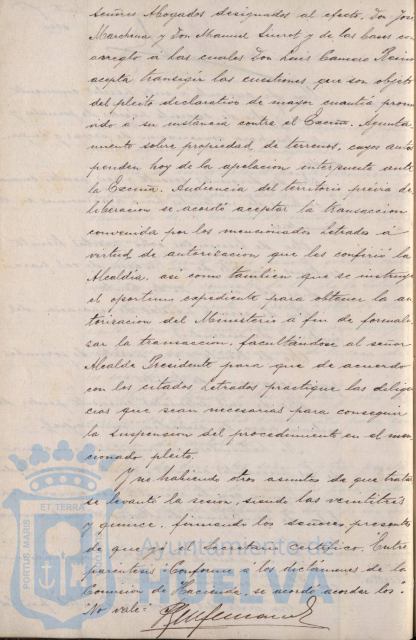 señores Abogados designados al efecto, Don José
Marchena y Don Manuel Siurot y de las bases con
arreglo á las cuales Don Luis Camaro Reino
acepta transigir las cuestiones que son objeto
del pleito declarativo de mayor cuantía promo
vido á su instancia contra el Excmo. Ayunta
miento sobre propiedad de terrenos, cuyos autos
penden hoy de la apelacion interpuesta ante
la Excma. Audiencia del territorio, prévia de
liberacion se acordó aceptar la transaccion
convenida por los mencionados Letrados á
virtud de autorizacion que les confirió la
Alcaldía, así como tambien que se instruya
el oportuno expediente para obtener la au
torizacion del Ministerio á fin de formali
zar la transaccion, facultándose al señor
Alcalde Presidente para que de acuerdo
con los citados Letrados practique las diligen
cias que sean necesarias para conseguir
la suspension del procedimiento en el men
cionado pleito.
Y no habiendo otros asuntos de que tratar
se levantó la sesion, siendo las veintitrés
y quince, firmando los señores presentes
de que yo el Secretario certifico. Entre
paréntesis "Conforme á los dictámenes de la
Comision de Hacienda, se acordó acordar los"
"No vale"
PORTUS MARIS ET TERRÆ
Ayuntamiento de
HUELVA